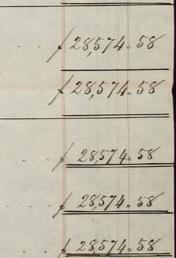 ƒ 28,574.58
ƒ 28,574.58
ƒ 28,574.58
ƒ 28,574.58
ƒ 28,574.58